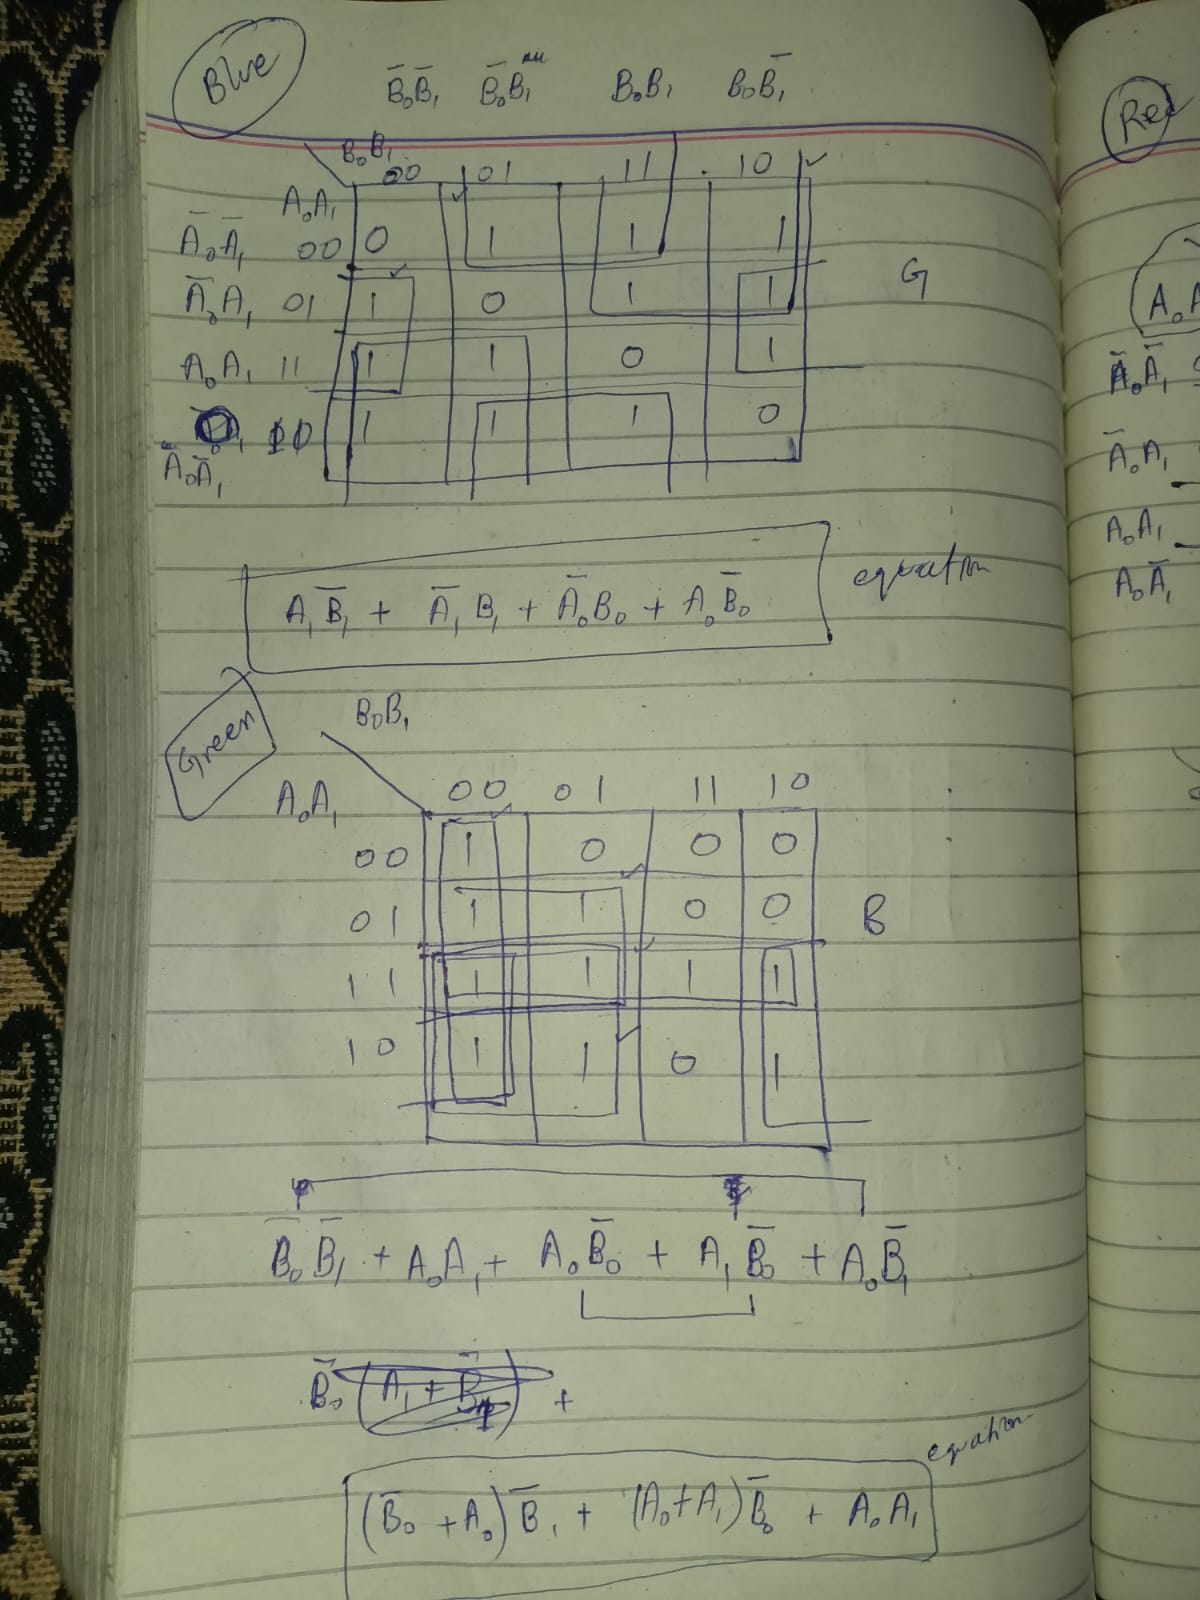 Blue
B̅₀B̅₁ B̅₀B₁ B₀B₁ B₀B̅₁
Red
B₀B₁
00 01 11 10
A₀A₁
A̅₀A̅₁ 00 0 1 1 1
A̅₀A₁ 01 1 0 1 1 G
A₀A₁ 11 1 1 0 1
10 1 1 1 0
A̅₀A̅₁
A₁B̅₁ + A̅₁B₁ + A̅₀B₀ + A₀B̅₀ equation
Green
B₀B₁
A₀A₁ 00 01 11 10
00 1 0 0 0
01 1 1 0 0 B
11 1 1 1 1
10 1 1 0 1
B̅₀B̅₁ + A₀A₁ + A₀B̅₀ + A₁B̅₀ + A₀B̅₁
B̅₀ (A₁ + +
equation
(B̅₀ + A₀)B̅₁ + (A₀+A₁)B̅₀ + A₀A₁
A̅₀A̅₁
A̅₀A₁
A₀A₁
A₀A̅₁